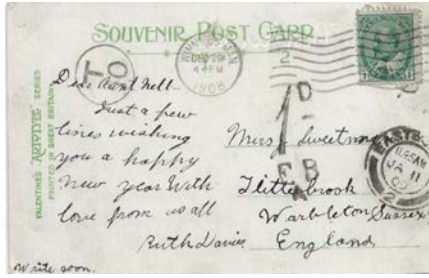 SOUVENIR POST CARD
VALENTINE'S "ARTOTYPE" SERIES
PRINTED IN GREAT BRITAIN
WINNIPEG MAN
DEC 29
4 PM
1908
2
T
10
1D
F.B
EASTB
11.15 AM
JA 11
09
2
Dear Aunt Nell—
Just a few
lines wishing
you a happy
New year With
love from us all
Ruth Davies
Write soon.
Miss Sweetman
Flitterbrook
Warbleton Sussex
England